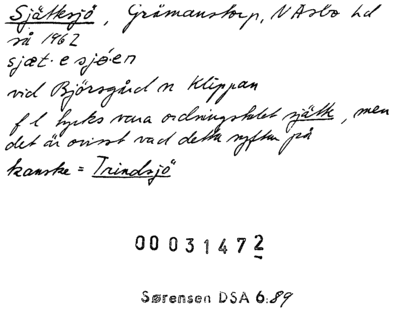 Sjättesjö, Gråmanstorp, N Åsbo hd
så 1962
sjæt·esjöen
vid Björsgård n Klippan
f l tycks vara ordningstalet sjätte, men
det är ovisst vad detta syftar på
kanske = Trindsjö
00031472
Sørensen DSA 6:89